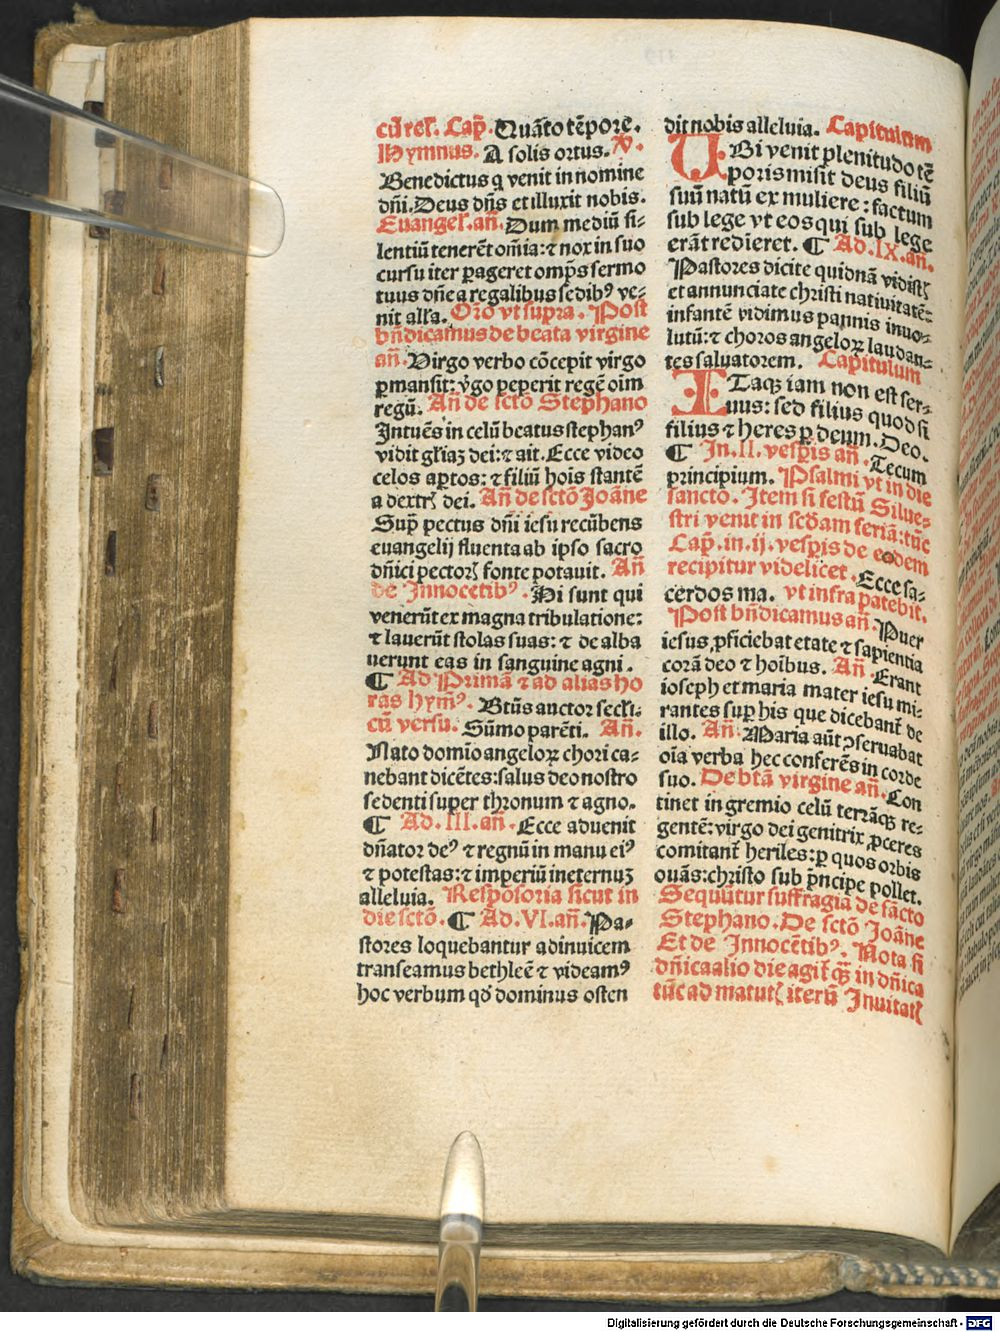 cū rel̄. Cap̄. Quāto tēpore.
Hymnus. A solis ortus. V̄.
Benedictus q̇ venit in nomine
dn̄i. Deus dn̄s et illuxit nobis.
Euangel̄. an̄. Dum mediū si-
lentiū tenerēt om̄ia: ⁊ nox in suo
cursu iter ꝑageret omp̄s sermo
tuus dn̄e a regalibus sedibꝰ ve-
nit all̄a. Oro vt supra. Post
bn̄dicamus de beata virgine
an̄. Virgo verbo cōcepit virgo
ꝑmansit: v̇go peperit regē oīm
regū. An̄ de sctō Stephano
Intuēs in celū beatus stephanꝰ
vidit gl̄iaꝫ dei: ⁊ ait. Ecce video
celos aꝑtos: ⁊ filiū hoīs stantē
a dextrꝭ dei. An̄ de sctō Joāne
Sup̄ pectus dn̄i iesu recūbens
euangelij fluenta ab ipso sacro
dn̄ici pectorꝭ fonte potauit. An̄
de Innocētibꝰ. Hi sunt qui
venerūt ex magna tribulatione:
⁊ lauerūt stolas suas: ⁊ de alba
uerunt eas in sanguine agni.
¶ Ad Primā ⁊ ad alias ho
ras hym̄ꝰ. Btūs auctor secl̄i.
cū versu. Sūmo parēti. An̄.
Nato domīo angeloꝝ chori ca-
nebant dicētes: salus deo nostro
sedenti super thronum ⁊ agno.
¶ Ad. III. an̄. Ecce aduenit
dn̄ator deꝰ ⁊ regnū in manu eiꝰ
⁊ potestas: ⁊ imperiū in eternuꝫ
alleluia. Respōsoria sicut in
die sctō. ¶ Ad. VI. an̄. Pa-
stores loquebantur adinuicem
transeamus bethleē ⁊ videamꝰ
hoc verbum qd̄ dominus osten
dit nobis alleluia. Capitulum
UBi venit plenitudo tē
poris misit deus filiū
suū natū ex muliere: factum
sub lege vt eos qui sub lege
erāt redieret. ¶ Ad. IX. an̄.
Pastores dicite quidnā vidistꝭ
et annunciate christi natiuitatē:
infantē vidimus pannis inuo-
lutū: ⁊ choros angeloꝝ laudan-
tes saluatorem. Capitulum
ITaqꝫ iam non est ser-
uus: sed filius quod si
filius ⁊ heres ꝑ deum. Deo.
¶ In. II. vesp̄is an̄. Tecum
principium. Psalmi vt in die
sancto. Item si festū Silue-
stri venit in scd̄am feriā: tūc
Cap̄. in. ij. vesp̄is de eodem
recipitur videlicet. Ecce sa-
cerdos ma. vt infra patebit.
Post bn̄dicamus an̄. Puer
iesus ꝓficiebat etate ⁊ sapientia
corā deo ⁊ hoībus. An̄. Erant
ioseph et maria mater iesu mi-
rantes sup̄ his que dicebant̄ de
illo. An̄. Maria aūt ↄseruabat
oīa verba hec conferēs in corde
suo. De btā virgine an̄. Con
tinet in gremio celū terrāqꝫ re-
gentē: virgo dei genitrix ꝓceres
comitant̄ heriles: ꝑ quos orbis
ouās: christo sub p̄ncipe pollet.
Sequūtur suffragia de sācto
Stephano. De sctō Joāne
Et de Innocētibꝰ. Nota si
dn̄ica alio die agit̄ qꝫ in dn̄ica
tūc ad matutꝭ iterū Inuitatꝭ
Digitalisierung gefördert durch die Deutsche Forschungsgemeinschaft - DFG